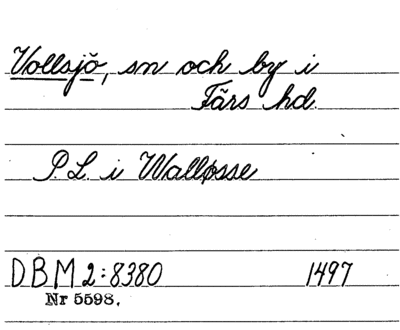 Vollsjö, sn och by i
Färs hd.
P. L. i Walløsse
DBM 2:8380 1497
Nr 5598.